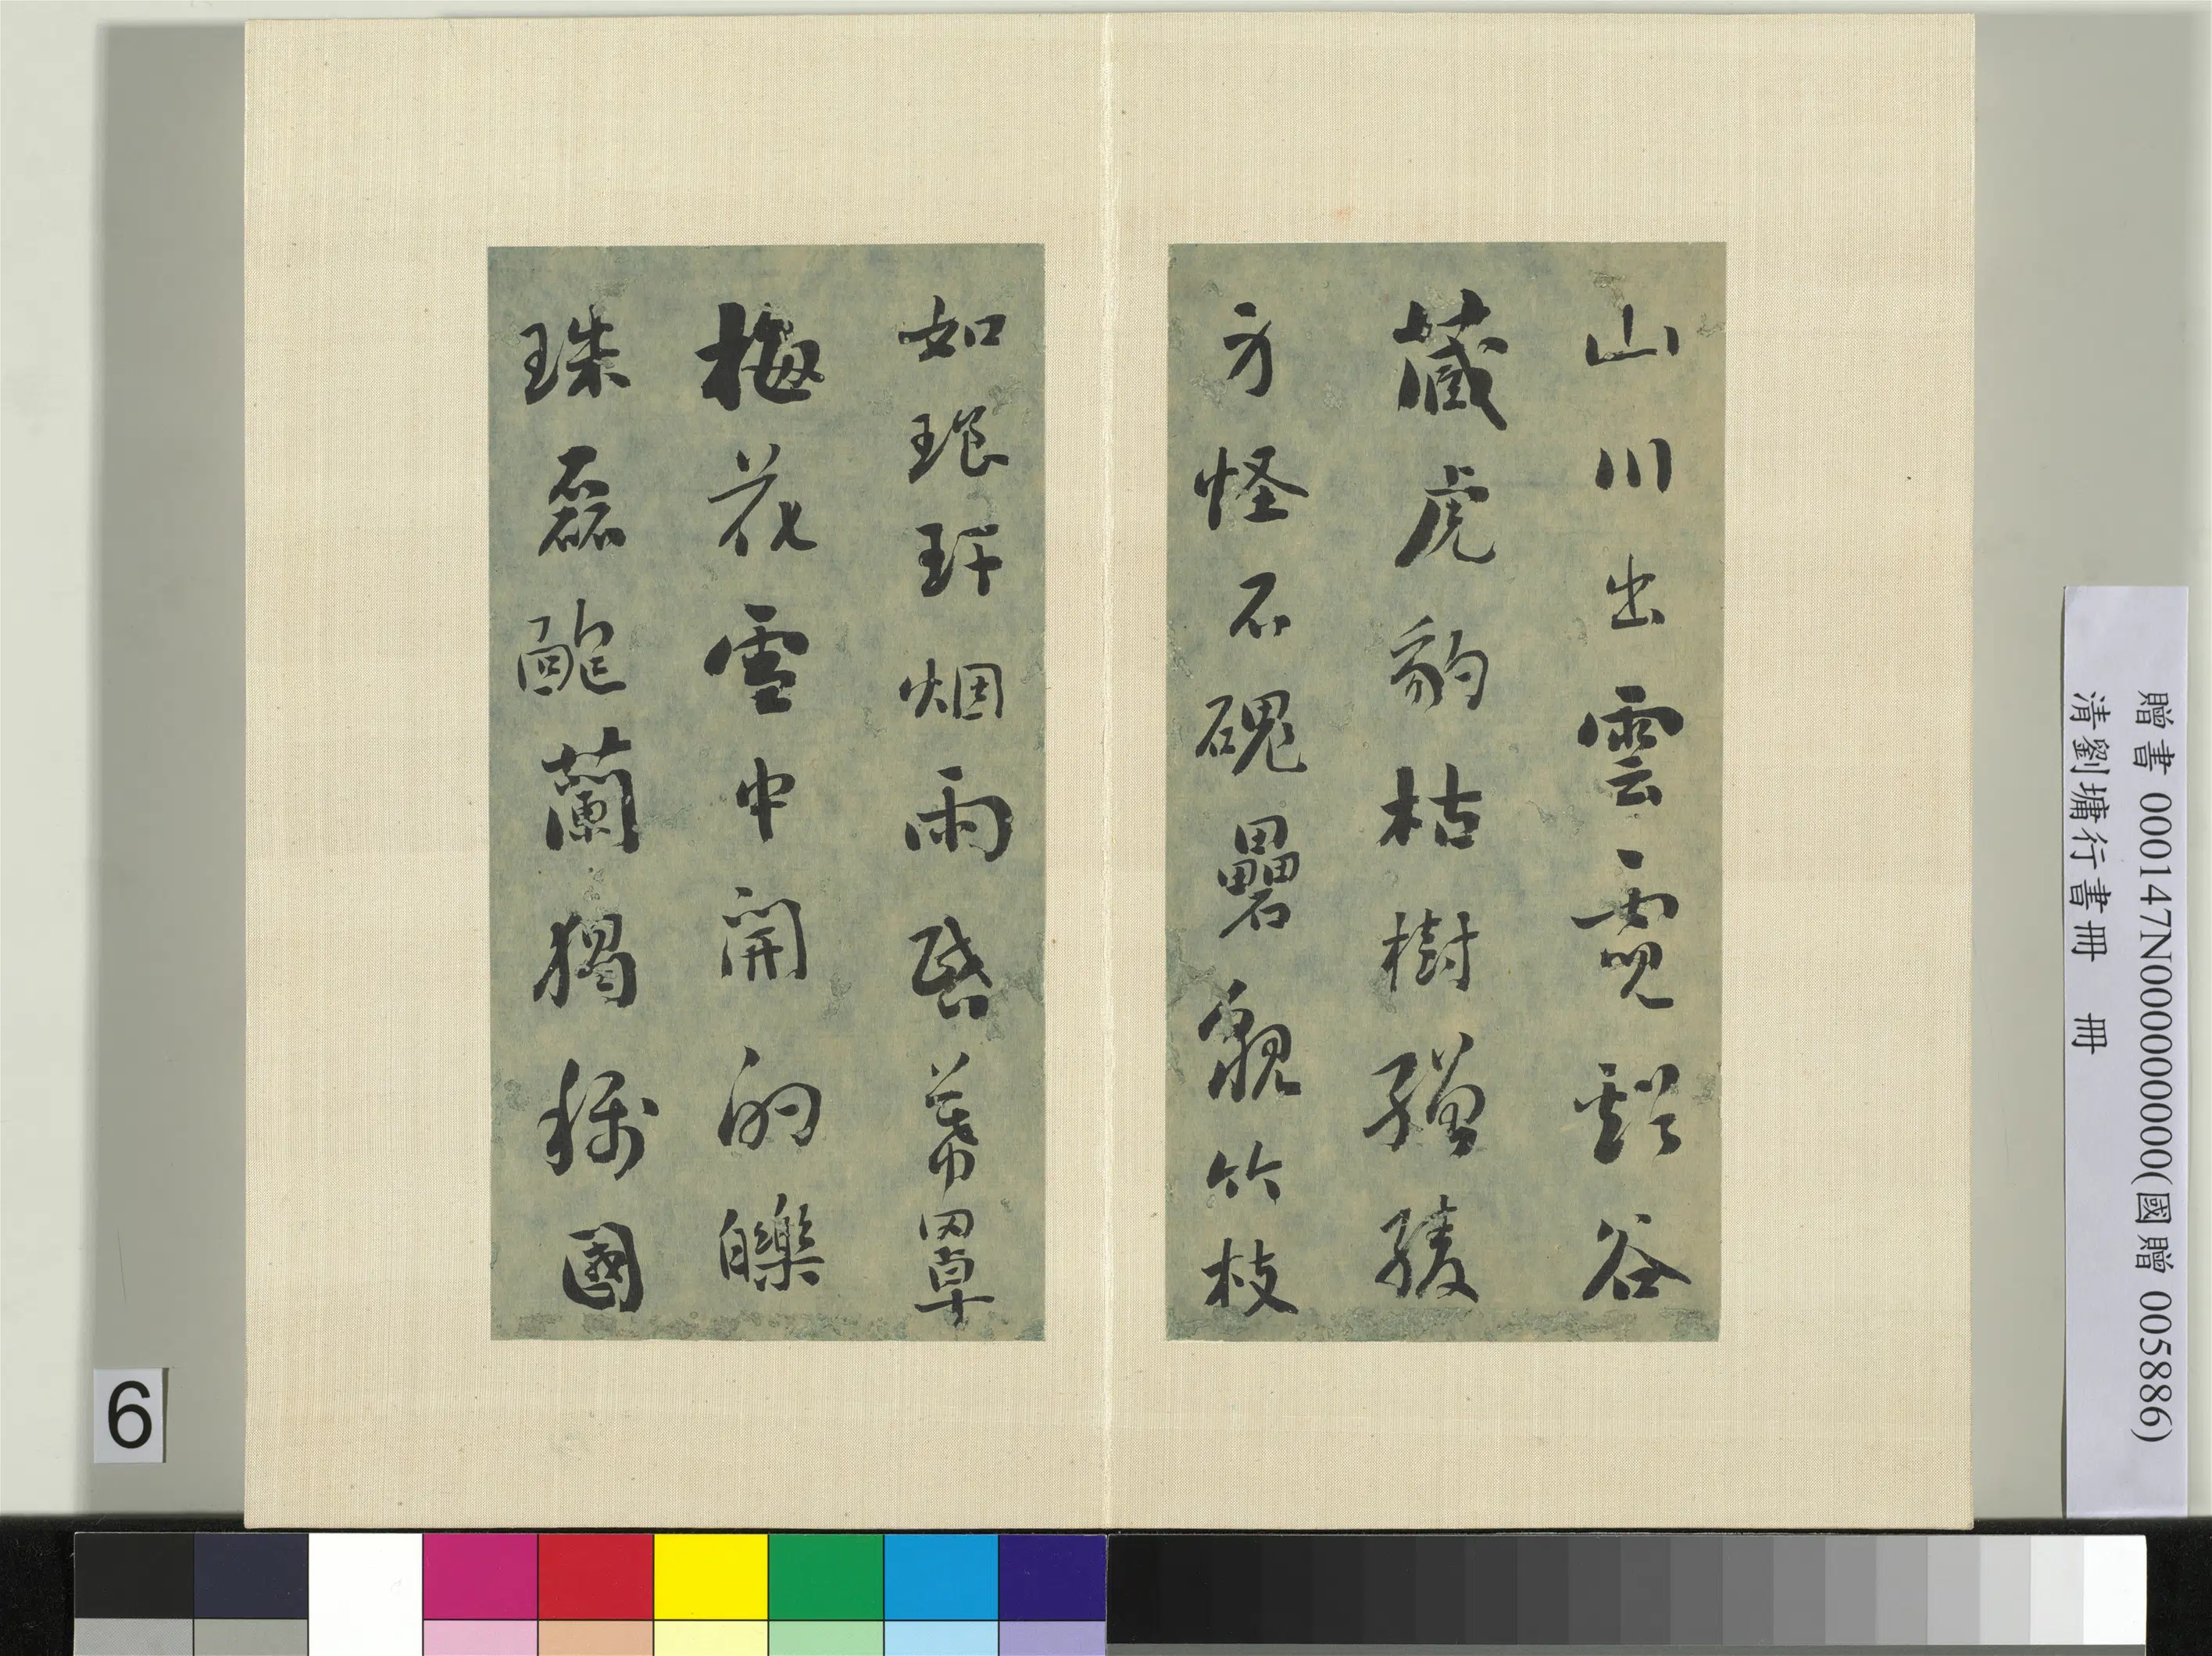 山川出雲霓谿谷
藏虎豹枯樹矰䅖
方怪石磈礨貌竹枝
如琅玕烟雨昏幕罩
梅花雪中開的皪
珠磊砢蘭獨稱國
贈書 000147N000000000(國贈 005886)
清劉墉行書冊 冊
6